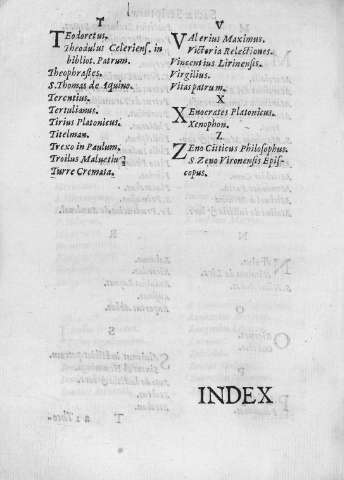 T
TEodoretus.
Theodulus Celeriens. in
bibliot. Patrum.
Theophrastes.
S. Thomas de Aquino.
Terentius.
Tertulianus.
Tirius Platonicus.
Titelman.
Trexo in Paulum.
Troilus Maluetiu9
Turre Cremata.
V
VAlerius Maximus.
Victoria Relectiones.
Vincentius Lirinensis.
Virgilius.
Vitaspatrum.
X
XEnocrates Platonicus.
Xenophon.
Z
ZEno Citticus Philosophus.
S. Zeno Vironensis Epis-
copus.
INDEX